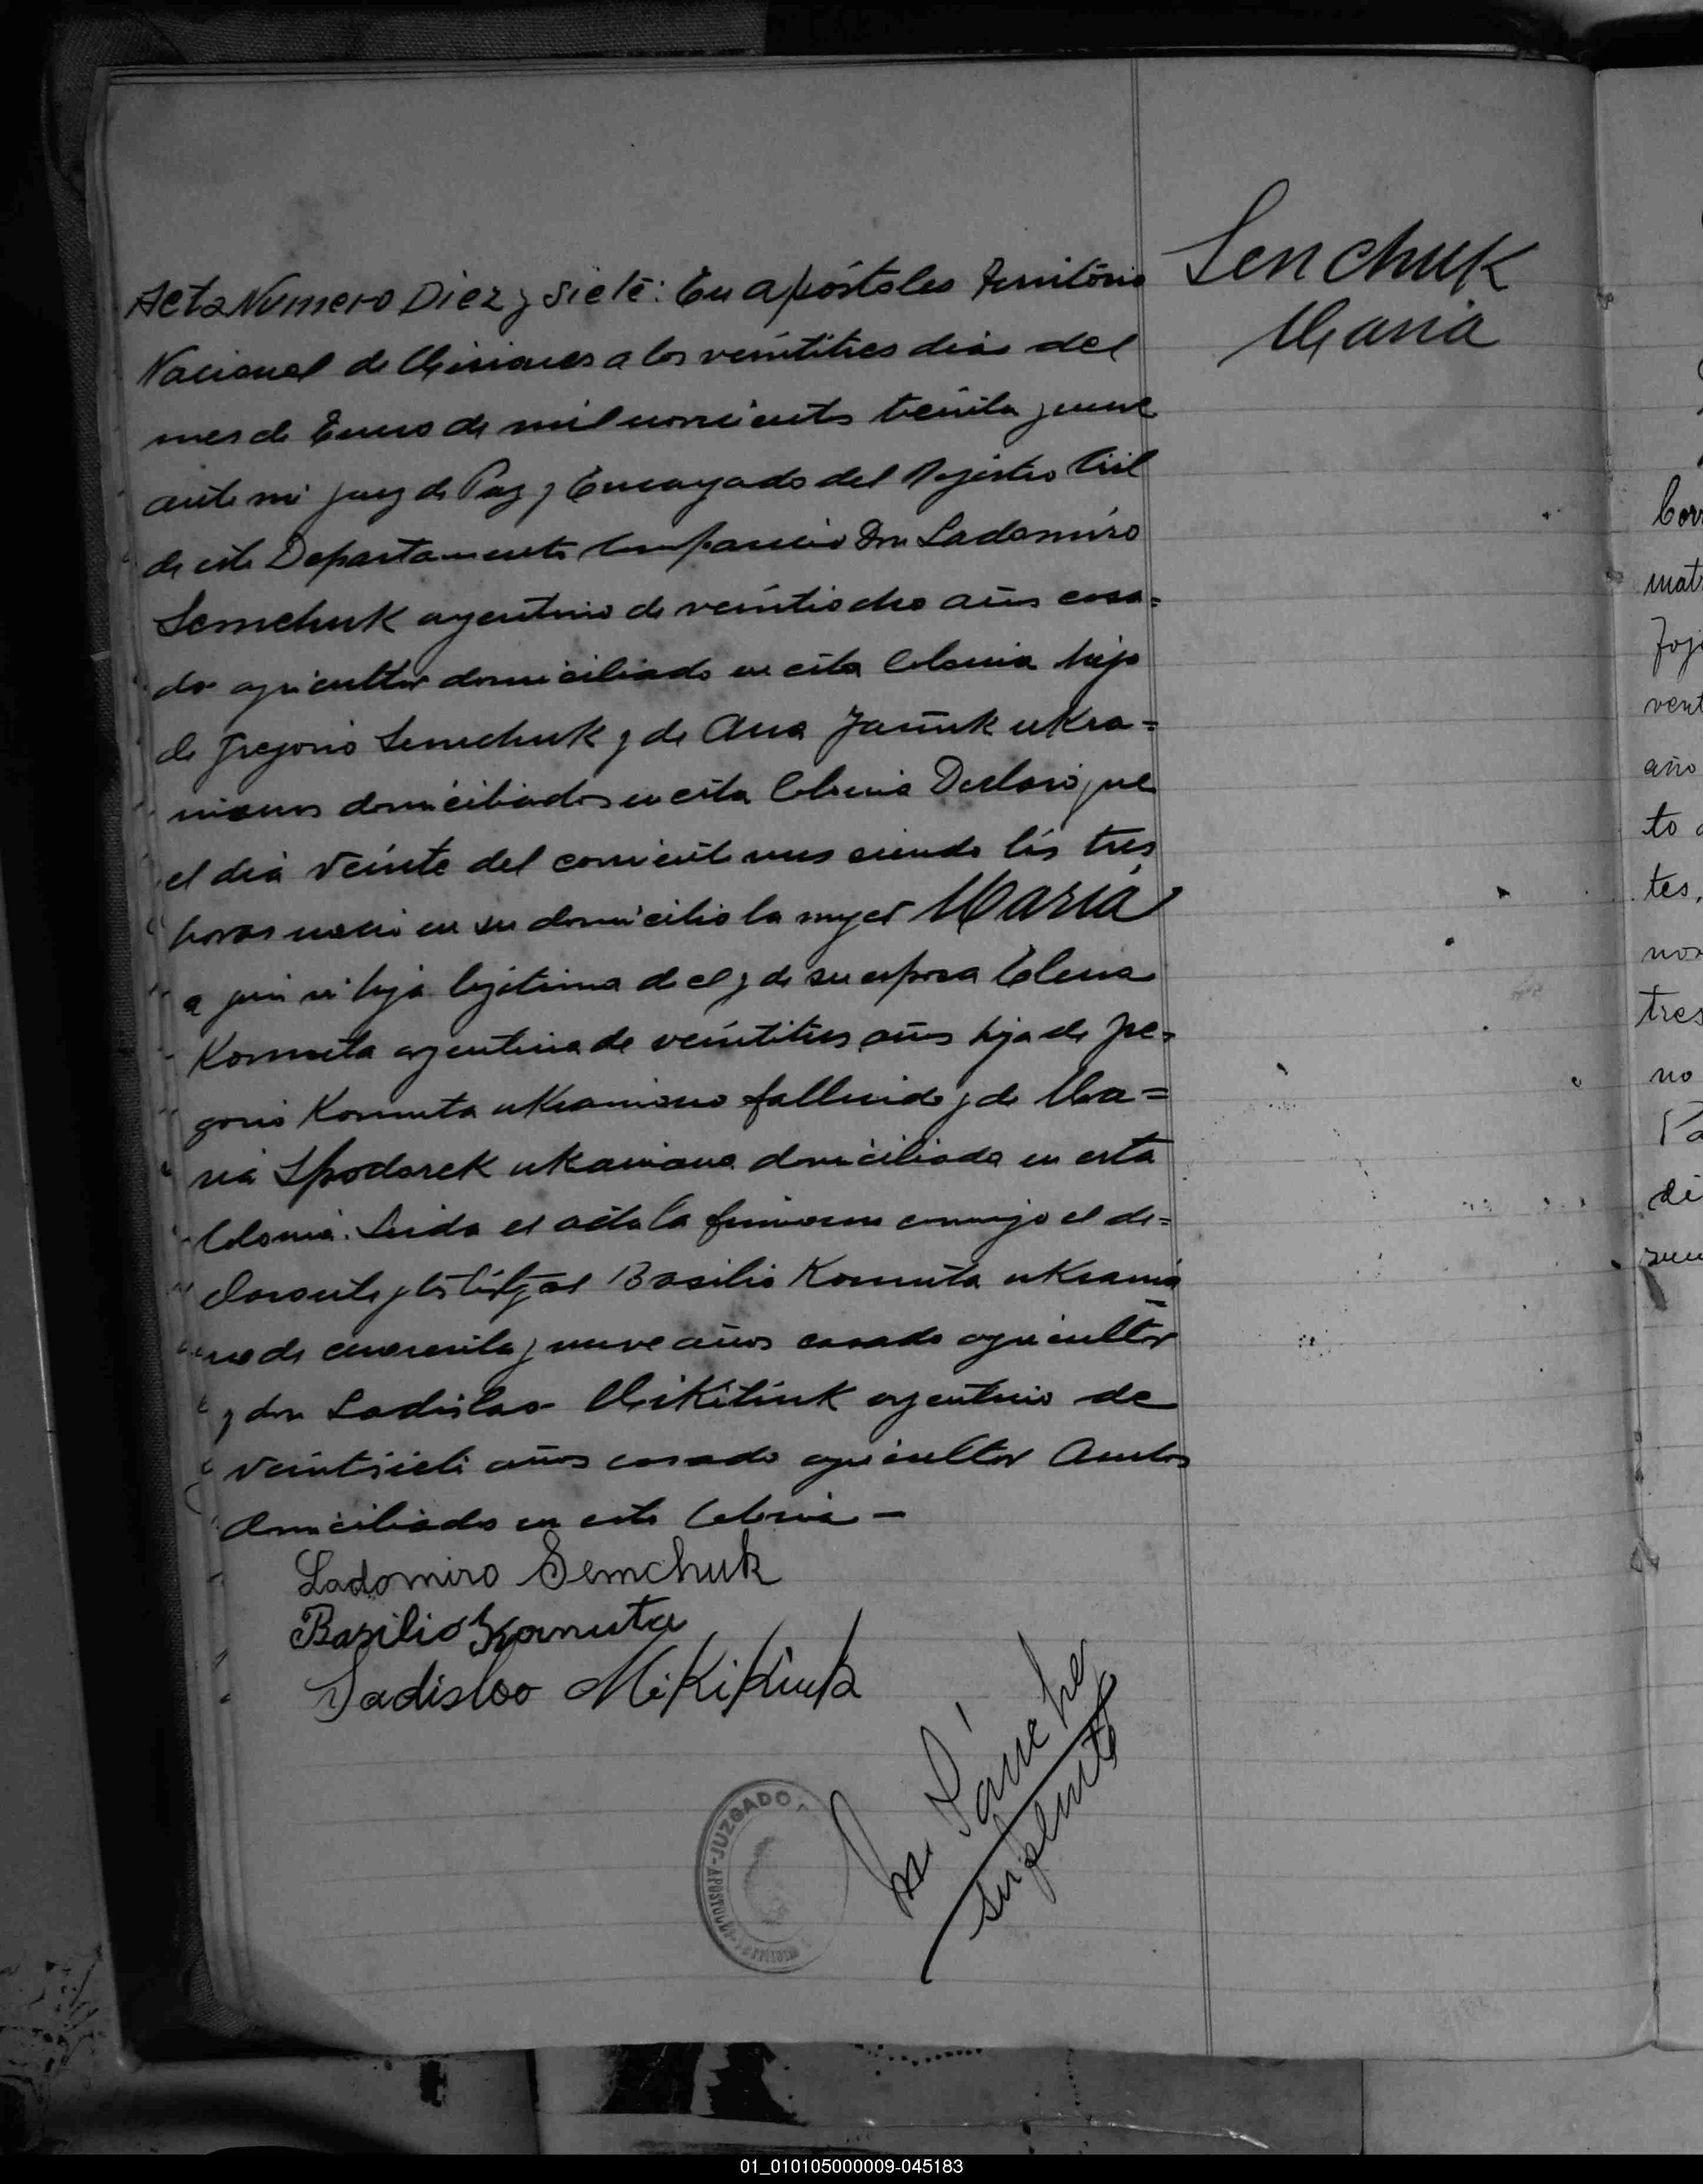 Acta Numero Diez y Siete: En apóstoles Territorio
Nacional de Misiones a los veintitres dias del
mes de Enero de mil novecientos treinta y nueve
ante mi juez de Paz y Encargado del Registro Civil
de este Departamento Comparecio Don Ladomiro
Semchuk argentino de veintiocho años casa=
do agricultor domiciliado en esta Colonia hijo
de Gregorio Semchuk y de Ana ukra=
nianos domiciliados en esta Colonia Declaró que
el dia veinte del corriente mes siendo las tres
horas nacio en su domicilio la mujer Maria
a quien vi hija legitima de el y de su esposa Elena
Kornuta argentina de veintitres años hija de Gre=
gorio Kornuta ukraniano fallecido y de Ma=
ria Spodarek ukraniana domiciliada en esta
Colonia. Leida el acta la firmaron conmigo el de=
clarante y los testigos Basilio Kornuta ukrania
no de cuarenta y nueve años casado agricultor
y don Ladislao Mikitiuk argentino de
veintisiete años casado agricultor Ambos
domiciliados en esta Colonia —
Ladomiro Semchuk
Basilio Kornuta
Vadisloo Mikitiuk
Sánchez
suplente
JUZGADO
APOSTOLES
Senchuk
Maria
Cor
mat
vent
año
to
tes,
tres
no
di
01_010105000009-045183